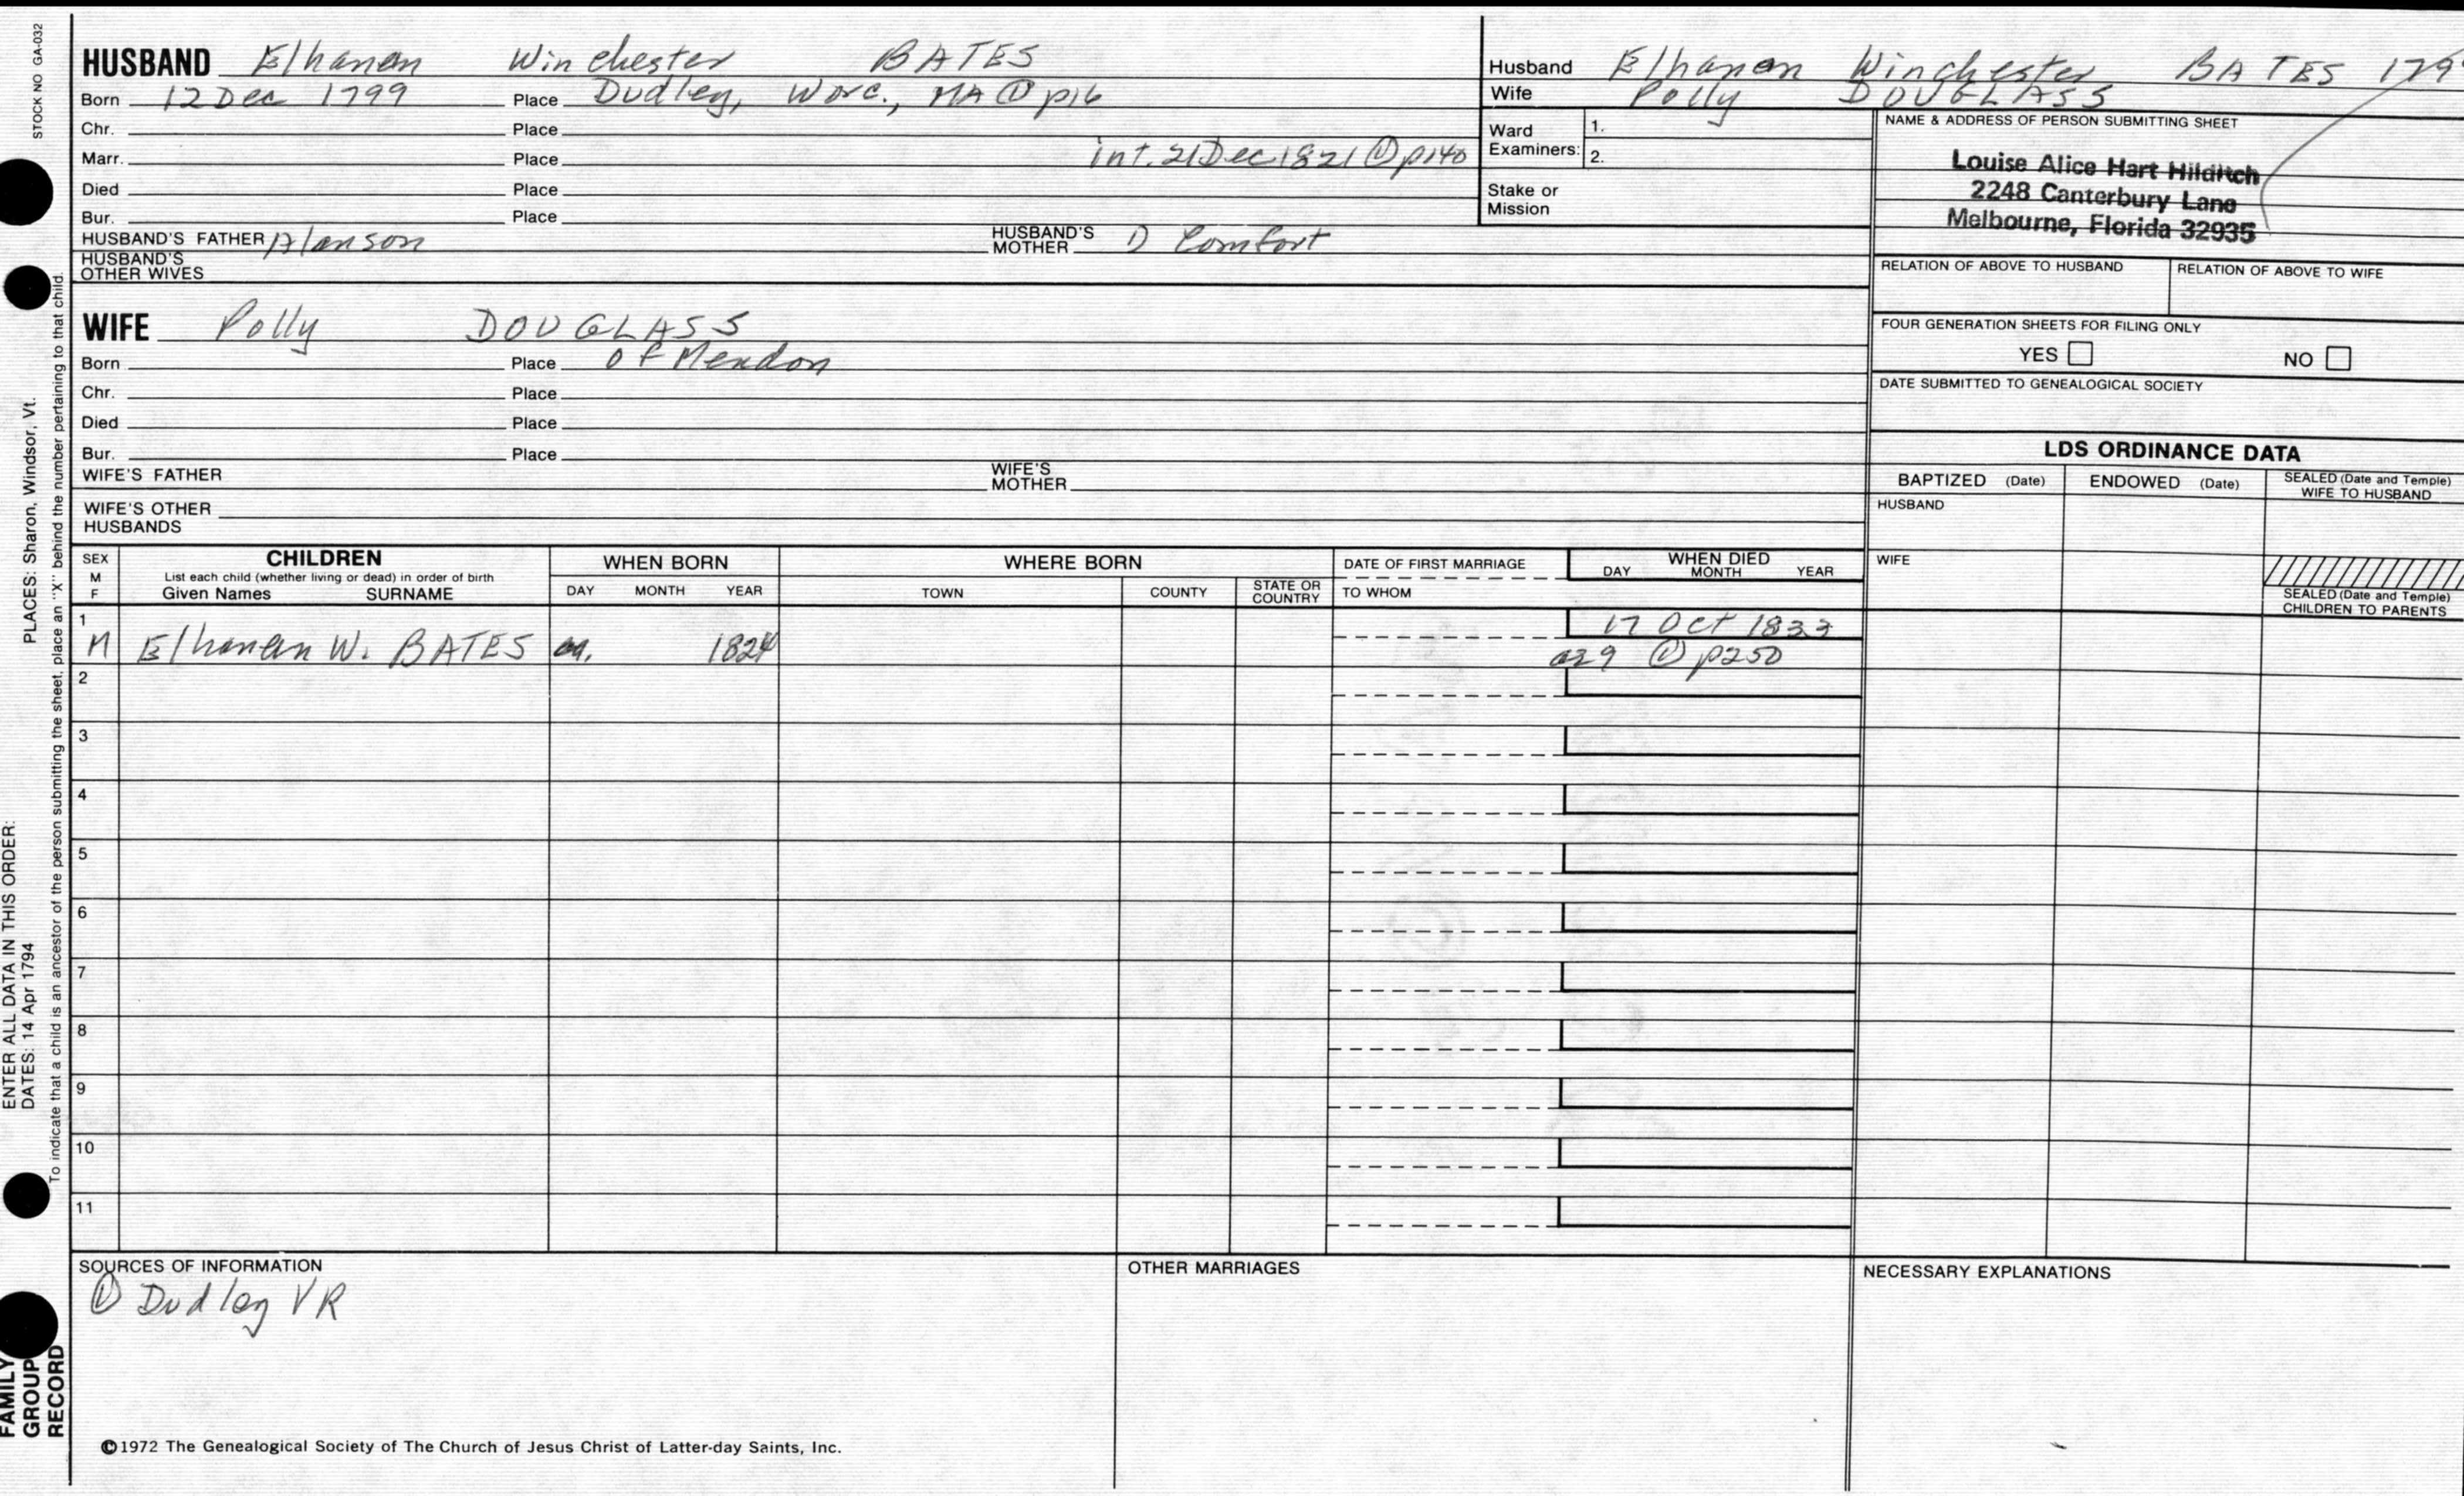 STOCK NO GA-032
HUSBAND Elhanan Winchester BATES
Born 12 Dec 1799 Place Dudley, Worc., MA ① p16
Chr. Place
Marr. Place int. 21 Dec 1821 ① p140
Died Place
Bur. Place
HUSBAND'S FATHER Alanson HUSBAND'S MOTHER D Comfort
HUSBAND'S OTHER WIVES
WIFE Polly DOUGLASS
Born Place of Mendon
Chr. Place
Died Place
Bur. Place
WIFE'S FATHER WIFE'S MOTHER
WIFE'S OTHER HUSBANDS
Husband Elhanan Winchester BATES 179
Wife Polly DOUGLASS
Ward Examiners: 1.
2.
Stake or Mission
NAME & ADDRESS OF PERSON SUBMITTING SHEET
Louise Alice Hart Hilditch
2248 Canterbury Lane
Melbourne, Florida 32935
RELATION OF ABOVE TO HUSBAND RELATION OF ABOVE TO WIFE
FOUR GENERATION SHEETS FOR FILING ONLY
YES NO
DATE SUBMITTED TO GENEALOGICAL SOCIETY
LDS ORDINANCE DATA
BAPTIZED (Date) ENDOWED (Date) SEALED (Date and Temple) WIFE TO HUSBAND
HUSBAND
WIFE
SEALED (Date and Temple) CHILDREN TO PARENTS
SEX M F CHILDREN WHEN BORN WHERE BORN DATE OF FIRST MARRIAGE WHEN DIED
List each child (whether living or dead) in order of birth
Given Names SURNAME DAY MONTH YEAR TOWN COUNTY STATE OR COUNTRY TO WHOM DAY MONTH YEAR
1 17 Oct 1833
M Elhanan W. BATES 1824 a29 ① p250
2
3
4
5
6
7
8
9
10
11
SOURCES OF INFORMATION OTHER MARRIAGES NECESSARY EXPLANATIONS
① Dudley VR
©1972 The Genealogical Society of The Church of Jesus Christ of Latter-day Saints, Inc.
ENTER ALL DATA IN THIS ORDER:
DATES: 14 Apr 1794 PLACES: Sharon, Windsor, Vt.
To indicate that a child is an ancestor of the person submitting the sheet, place an "X" behind the number pertaining to that child.
FAMILY GROUP RECORD